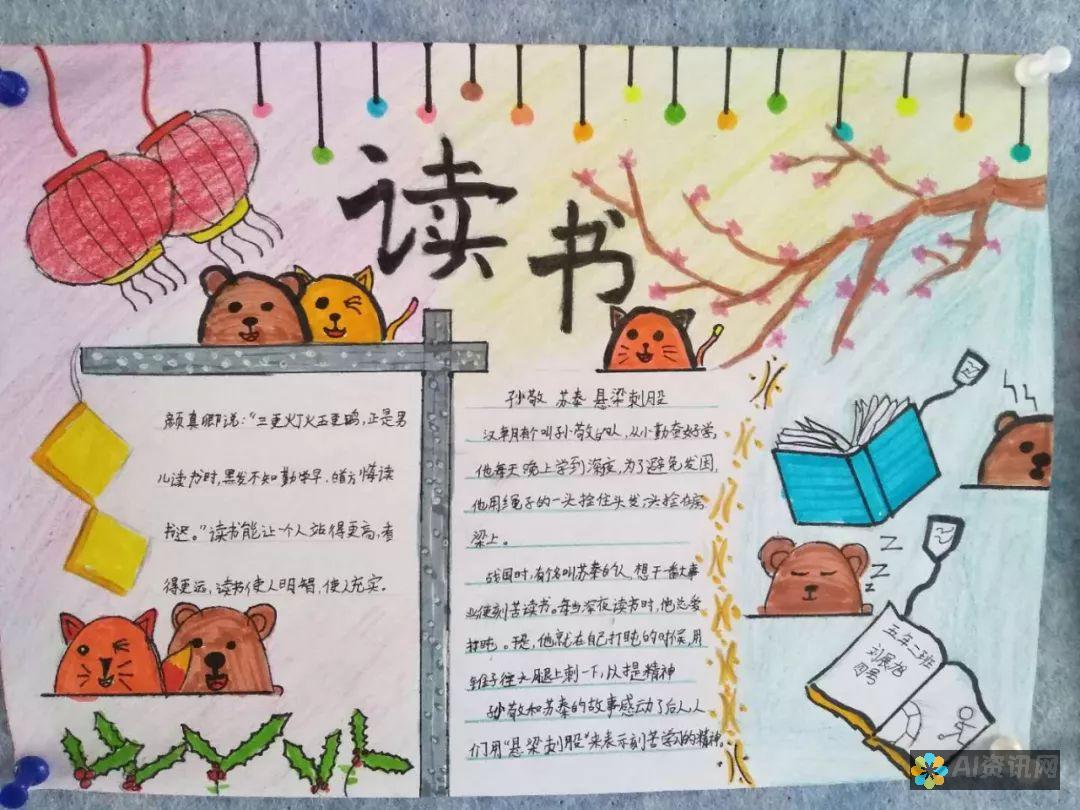 读书
颜真卿说：“三更灯火五更鸡，正是男
儿读书时，黑发不知勤学早，白首方悔读
书迟。”读书能让一个人站得更高，看
得更远，读书使人明智，使人充实。
孙敬 苏秦 悬梁刺股
汉朝有个叫孙敬的人，从小勤奋好学，
他每天晚上学到深夜，为了避免发困，
他用绳子的一头拴住头发，一头拴在房
梁上。
战国时，有个名叫苏秦的人，想干一番大事
业便刻苦读书。每当深夜读书时，他总爱
打盹。于是，他就在自己打盹的时候，用
锥子往大腿上刺一下，以提精神
孙敬和苏秦的故事感动了后人，人
们用“悬梁刺股”来表示刻苦学习的精神。
Z
Z
Z
五年二班
刘展旭
四号
AI资讯网